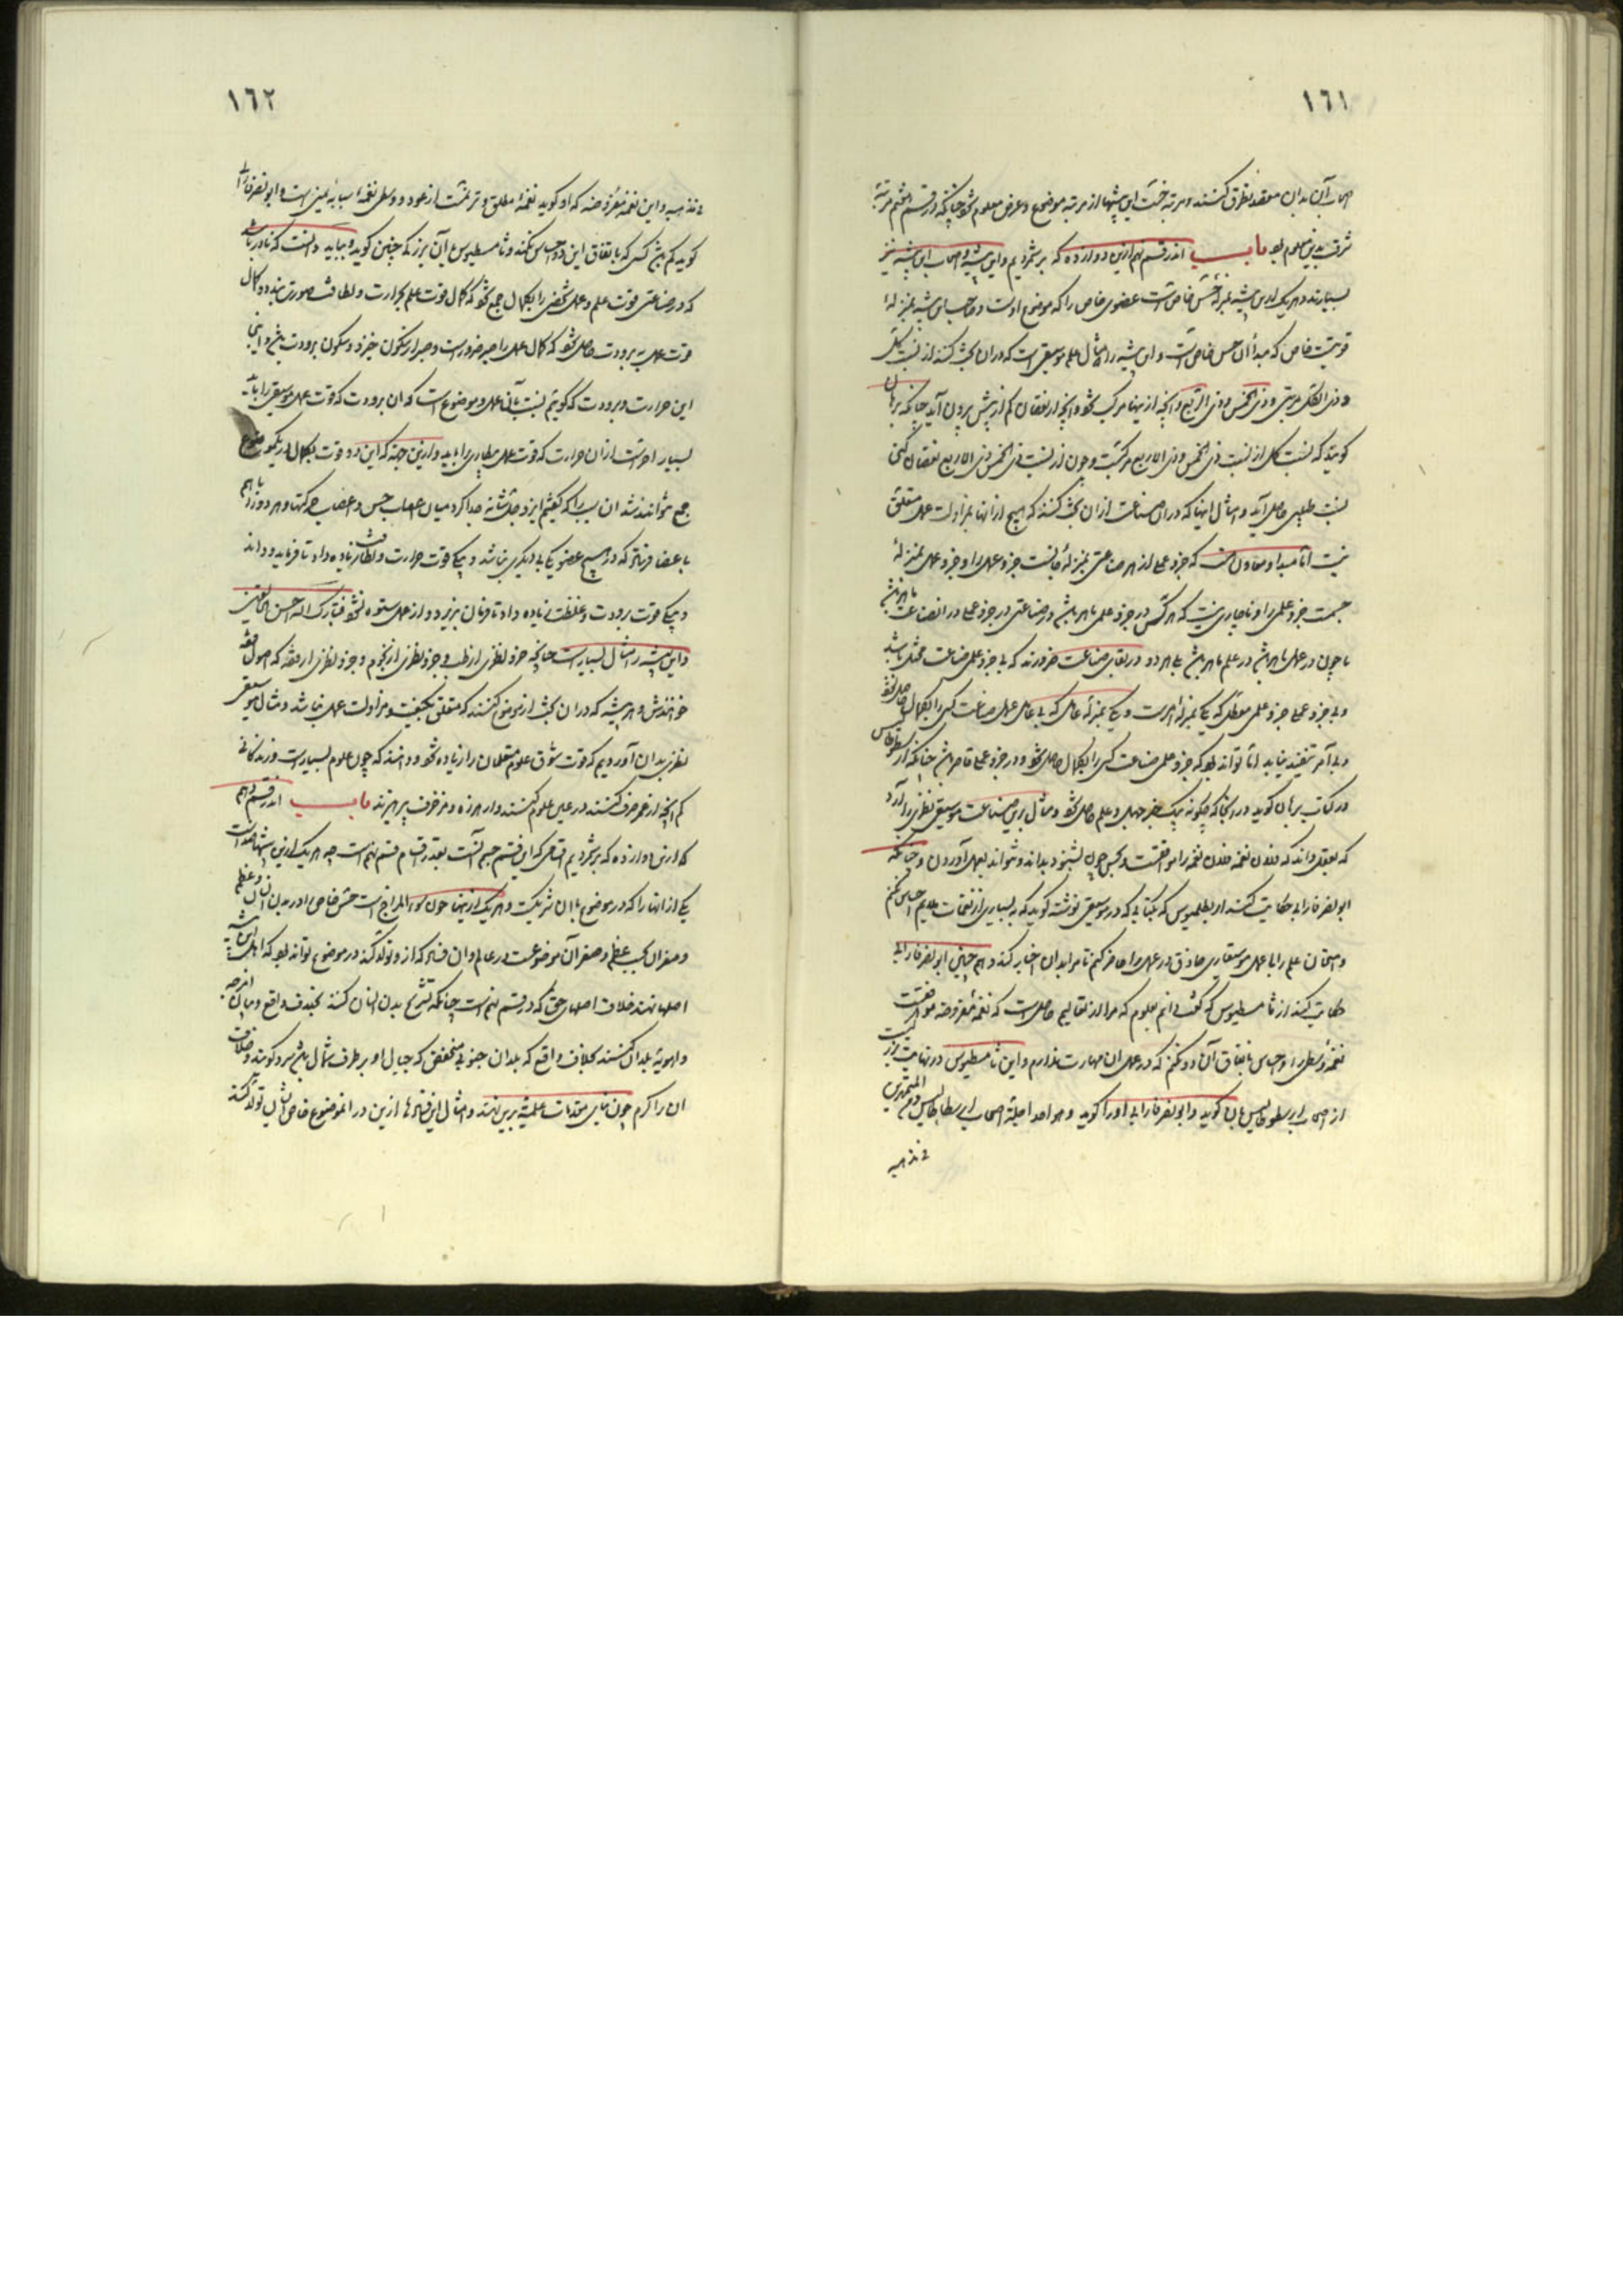 ١٦١
اصحاب آن بدان مقصد تطرق کنند و مرتبه خست این پیشها از مرتبه موضوع و غرض معلوم شود چنانکه در قسم هشتم مرتبه
شرف بدین معلوم بود باب اندر قسم نهم ازین دوازده که بر شمردیم و این پیشه و اصحاب این پیشه نیز
بسیارند و هر یک ازین پیشه بمنزله حس خاص است عضوی خاص را که موضوع اوست و صاحب این پیشه بمنزلهٔ
قوتیست خاص که مبدأ آن حس خاص است و این پیشه را مثال علم موسیقی است که در آن بحث کنند از نسبت کل
و ذی الکل مرتین و ذی الخمس و ذی الاربع و آنچه ازینها مرکب شود و آنچه از نقصان کم از بیش برون آید چنانکه برهان
گویند که نسبت کل از نسبت ذی الخمس و ذی الاربع مرکبست و چون از نسبت ذی الخمس ذی الاربع نقصان کنی
نسبت طنینی حاصل آید و امثال اینها که در آن صناعت از آن بحث کنند که هیچ از آنها بمزاولت عمل متعلق
نیست اما مبدأ و معاون است که جزو عملی از هر صناعتی بمنزلهٔ جانست جزو عملی را و جزو عملی بمنزلهٔ
جسمست جزو علمی را و ناچاری نیست که هر کس در جزو علمی ماهر باشد در صناعتی در جزو عملی در آن صناعت ماهر باشد
یا چون در عمل ماهر باشد در علم ماهر باشد بلی هر دو در بقای صناعت ضرورند که بی جزو علمی صناعت مختل باشد
و بی جزو عملی جزو علمی معطل که یکی بمنزلهٔ آمرست و یکی بمنزلهٔ عامل که بی عامل عمل صناعت کسی را بکمال حاصل نشود
و بی آمر تنفیذ نیابد اما تواند بود که جزو علمی صناعت کسی را بکمال حاصل شود و در جزو عملی قاصر باشد چنانکه ارسطوطالیس
در کتاب برهان گوید در آنجا که چگونه بیک چیز جهل و علم حاصل شود و مثال برین صناعت موسیقی نظری را آرد
که بعقل داند که فلان نغمه فلان نغمه را موافقست و بحس چون بشنود بداند و نتواند بعمل آوردن و چنانکه
ابو نصر فارابی حکایت کند از بطلمیوس که بکتابی که در موسیقی نوشته گوید که به بسیاری از نغمات ملایم احساس نکنم
و امتحان علم را با عمل موسیقاری حاذق در عمل را حاضر کنم تا مرا بدان اخبار کند و هم چنین ابو نصر فارابی
حکایت کند از ثامسطیوس که گفت دانم بعلوم که مرا از تعالیم حاصل است که نغمهٔ مفروضه موافقست
نغمهٔ وسطی را و احساس باتفاق آن دو نکنم که در عمل آن مهارت ندارم و این ثامسطیوس در نهایت بزرگیست
از اصحاب ارسطوطالیس بان گوید و ابو نصر فارابی او را گوید و هو احد اجلة اصحاب ارسطاطالیس و من المتمهرین
فی مذهبه
١٦٢
فی مذهبه و این نغمهٔ مفروضه که او گوید نغمهٔ مطلق وتر مثلث از عود و وسطی نغمهٔ سبابه یمنی است و ابو نصر فارابی
گوید کم باشد کسی که باتفاق این دو احساس نکند و ثامسطیوس با آن بزرگی چنین گوید و بباید دانست که نادر باشد
که در صناعتی قوت علم و عمل شخصی را بکمال جمع شود که کمال قوت علم بحرارت و لطافت صورت بندد و کمال
قوت عملی به برودت حاصل شود که کمال عمل را صبر ضرورست و صبر از سکون خیزد و سکون برودت باشد و اینجا
این حرارت و برودت که گوییم نسبت بآن عمل و موضوع است که آن برودت که قوت عمل موسیقی را باید
بسیار احرست از آن حرارت که قوت عمل بیطاری را باید و ازین جهته که این دو قوت بکمال در یک موضوع
جمع نتوانند شد آن سبب را که گفتیم ایزد جل شانه جدا کرد میان اعصاب حس و اعصاب حرکتها و هر دو را باهم
باعضا فرستاد که در هیچ عضو یکی بی دیگری نباشد و یکی قوت حرارت و لطافت زیاده داد تا فرماید و داند
و یکی قوت برودت و غلظت زیاده داد تا فرمان پذیرد و از عمل ستوه نشود فتبارک الله احسن الخالقین
و این پیشه را مثال بسیارست چنانچه جزو نظری از طب و جزو نظری از نجوم و جزو نظری از فقه که اصول فقه
خوانندش و هر پیشه که در آن بحث از موضوع کنند که متعلق بکیفیت و مزاولت عمل نباشد و مثال موسیقی
نظری بدان آوردیم که قوت شوق علوم متعلمان را زیاده شود و دانند که چون علوم بسیارست و زندگانی
کم آنچه از عمر صرف کنند در عین علوم کنند و از هرزه و مزخرف بپرهیزند باب اندر قسم دهم
که ازین دوازده که بر شمردیم اقسامی که این قسم جسم آنست بعدد اقسام قسم نهم است چه هر یک ازین پیشها ضد است
یکی از آنها را که در موضوع با آن شریکست و هر یک ازینها چون سوء المزاج است حس خاص او در بدن انسان و عظم
و صغر آن بحسب عظم و صغر آن موضوعست در عالم و آن فساد که ازو تولد کند در موضوع تواند بود که اهل این پیشه
اصلها نهند خلاف اصلهای حق که در قسم نهم است چنانکه تشریح بدن انسان کنند بخلاف واقع و بیان امزجه
و اهویهٔ بلدان کنند بخلاف واقع که بلدان جنوبی منخفض که جبال او بر طرف شمال باشد سرد گویند و خلاف
آن را گرم چون بنای مقدمات علمیه برین نهند و امثال این فسادها ازین در آن موضوع خاص انسانی تولد کند